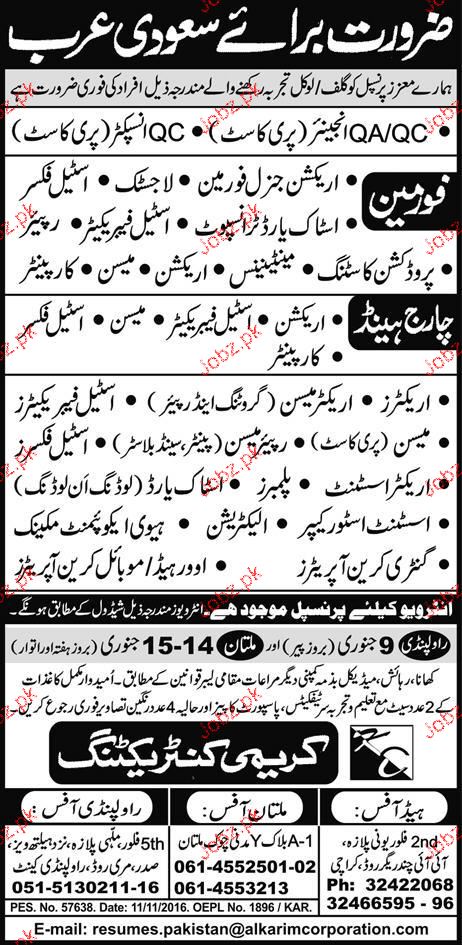 ضرورت برائے سعودی عرب
ہمارے معزز پرنسپل کو گلف/لوکل تجربہ رکھنے والے مندرجہ ذیل افراد کی فوری ضرورت ہے
• QA/QC انجینئر (پری کاسٹ) • QC انسپکٹر (پری کاسٹ)
فورمین
• اریکشن جنرل فورمین • لاجسٹک • اسٹیل فکسر
• اسٹاک یارڈ ٹرانسپورٹ • اسٹیل فیبریکیٹر • رپیئر
• پروڈکشن کاسٹنگ • مینٹیننس • اریکشن • میسن • کارپینٹر
چارج ہینڈ
• اریکشن • اسٹیل فیبریکیٹر • میسن • اسٹیل فکسر
• کارپینٹر
• اریکٹرز • اریکٹر میسن (گروٹنگ اینڈ رپیئر) • اسٹیل فیبریکیٹرز
• میسن (پری کاسٹ) • رپیئر میسن (پینٹر، سینڈ بلاسٹر) • اسٹیل فکسرز
• اریکٹر اسسٹنٹ • پلمبرز • اسٹاک یارڈ (لوڈنگ اَن لوڈنگ)
• اسسٹنٹ اسٹور کیپر • الیکٹریشن • ہیوی ایکوئپمنٹ مکینک
• گنٹری کرین آپریٹرز • اوورہیڈ/موبائل کرین آپریٹرز
انٹرویو کیلئے پرنسپل موجود ھے۔ انٹرویوز مندرجہ ذیل شیڈول کے مطابق ہونگے۔
راولپنڈی 9 جنوری (بروز پیر) اور ملتان 14-15 جنوری (بروز ہفتہ اور اتوار)
کھانا، رہائش، میڈیکل بذمہ کمپنی دیگر مراعات مقامی لیبر قوانین کے مطابق۔ اُمیدوار مکمل کاغذات
کے 2 عدد سیٹ مع تعلیم و تجربہ سرٹیفکیٹس، پاسپورٹ کاپیز اور حالیہ 4 عدد رنگین تصاویر فوری رجوع کریں۔
کریمی کنٹریکٹنگ
ہیڈ آفس:
2nd فلور یونی پلازہ،
آئی آئی چندریگر روڈ، کراچی
Ph: 32422068
32466595 - 96
ملتان آفس:
A-1 بلاک Y مدنی چوک ملتان
061-4552501-02
061-4553213
راولپنڈی آفس:
5th فلور، ملہی پلازہ، نزد ہیلتھ ویز،
صدر، مری روڈ، راولپنڈی کینٹ
051-5130211-16
PES. No. 57638. Date: 11/11/2016. OEPL No. 1896 / KAR.
E-mail: resumes.pakistan@alkarimcorporation.com